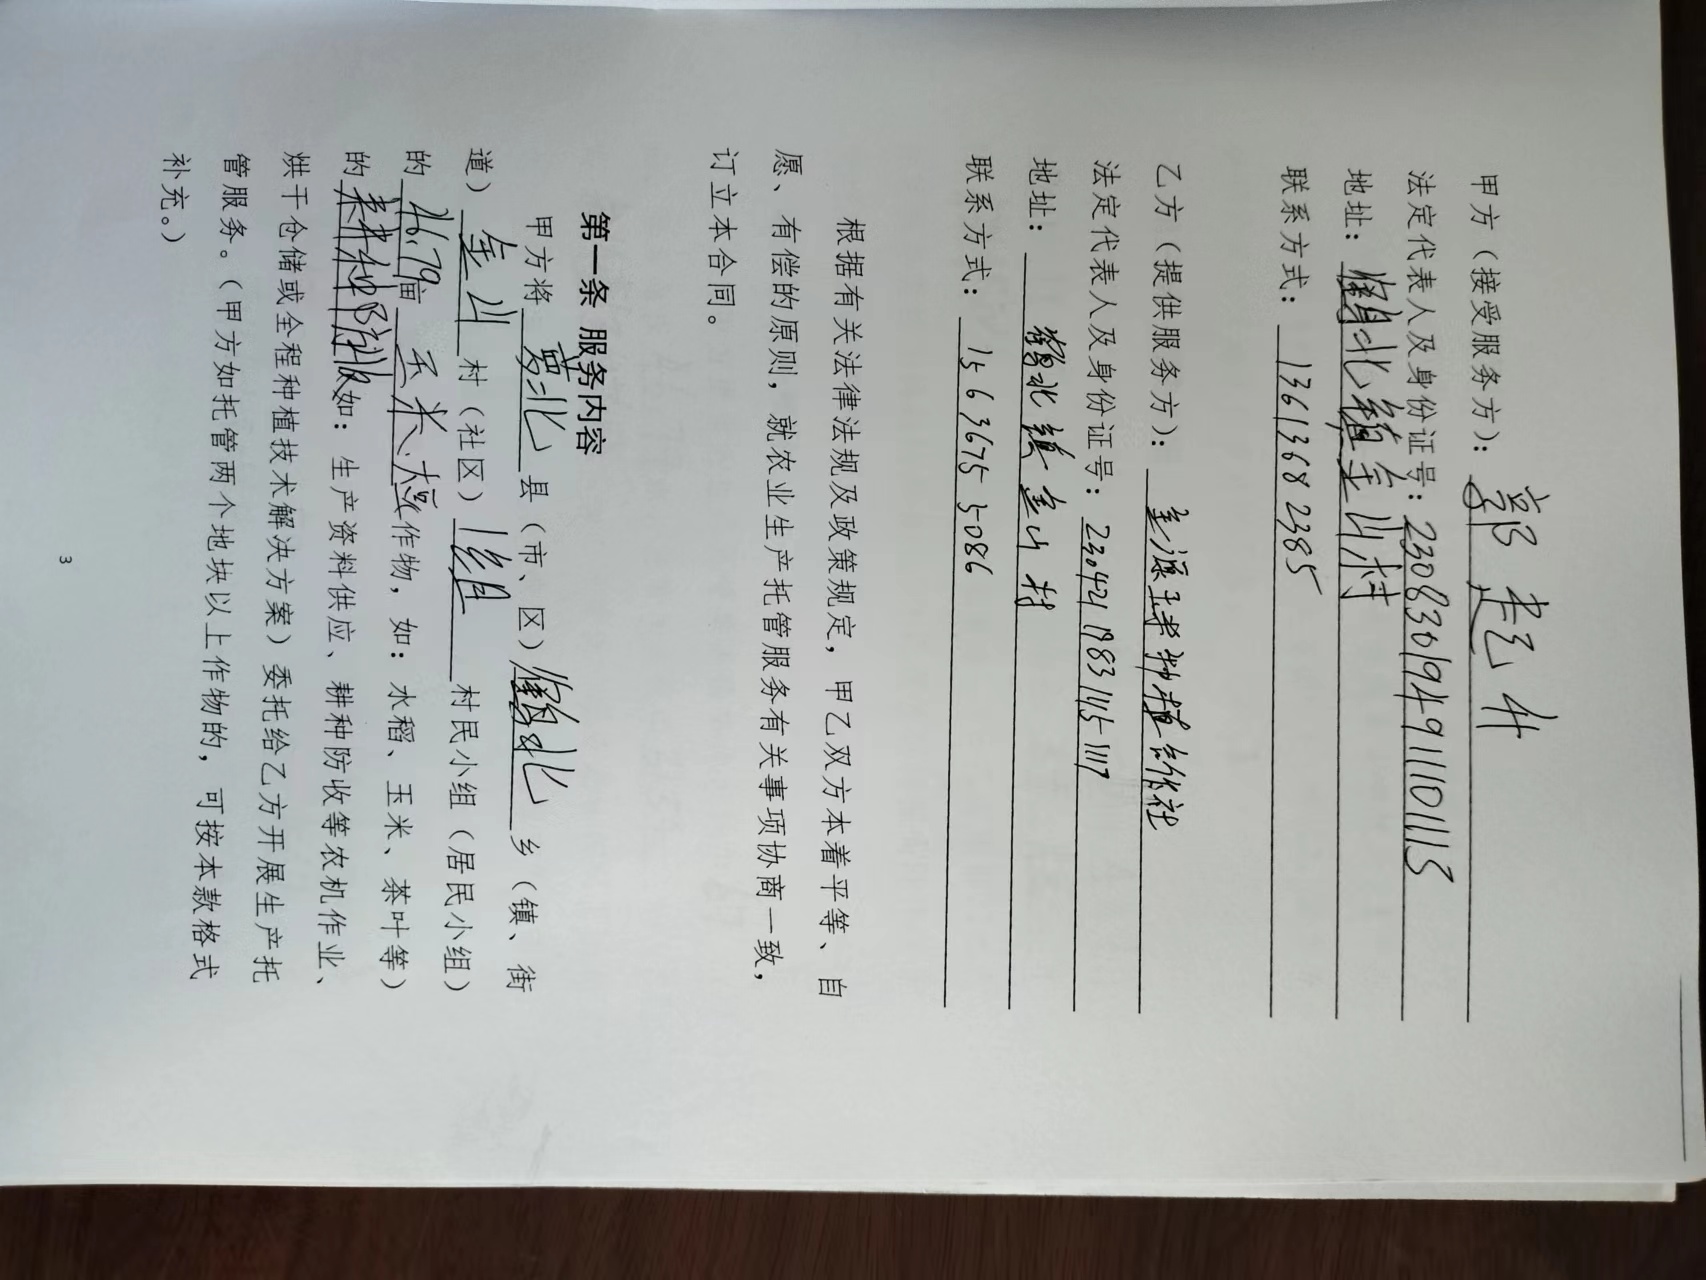 甲方（接受服务方）：郭志升
法定代表人及身份证号：230830194911101113
地址：鹤北镇金山村
联系方式：13613682385
乙方（提供服务方）：金源玉米种植合作社
法定代表人及身份证号：230421198311151117
地址：鹤北镇金山村
联系方式：15636755086
根据有关法律法规及政策规定，甲乙双方本着平等、自
愿、有偿的原则，就农业生产托管服务有关事项协商一致，
订立本合同。
第一条 服务内容
甲方将萝北县（市、区）鹤北乡（镇、街
道）金山村（社区）1组村民小组（居民小组）
的26.79亩玉米、大豆作物，如：水稻、玉米、茶叶等）
的耕种防收如：生产资料供应、耕种防收等农机作业、
烘干仓储或全程种植技术解决方案）委托给乙方开展生产托
管服务。（甲方如托管两个地块以上作物的，可按本款格式
补充。）
3